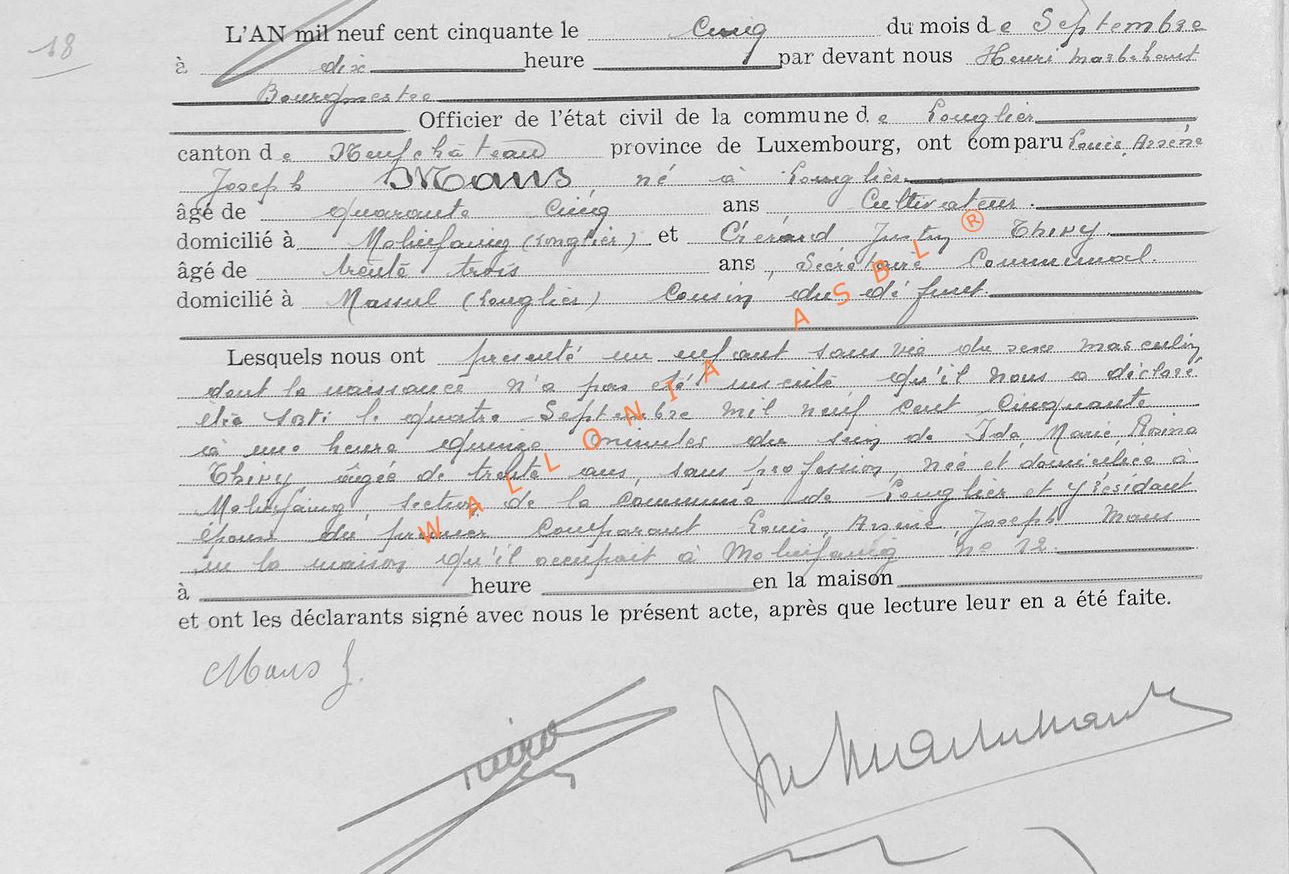 18
L'AN mil neuf cent cinquante le Cinq du mois de Septembre
à dix heure par devant nous Henri Marbehant
Bourgmestre
Officier de l'état civil de la commune de Longlier
canton de Neufchâteau province de Luxembourg, ont comparu Louis, Arsène
Joseph Maus, né à Longlier
âgé de quarante cinq ans Cultivateur.
domicilié à Molinfaing (Longlier) et Gérard Justin Thiry
âgé de trente trois ans, Secrétaire Communal.
domicilié à Massul (Longlier) Cousin du défunt
Lesquels nous ont présenté un enfant sans vie du sexe masculin,
dont la naissance n'a pas été inscrite qu'il nous a déclaré
être sorti le quatre Septembre mil neuf cent Cinquante
à une heure quinze minutes du sein de Ida, Marie, Rosina
Thiry âgée de trente ans, sans profession, née et domiciliée à
Molinfaing, section de la commune de Longlier et y résidant
épouse du premier Comparant Louis, Arsène Joseph Maus
en la maison qu'il occupait à Molinfaing no 12.
à heure en la maison
et ont les déclarants signé avec nous le présent acte, après que lecture leur en a été faite.
Maus J.
WALLONIA ASBL ®